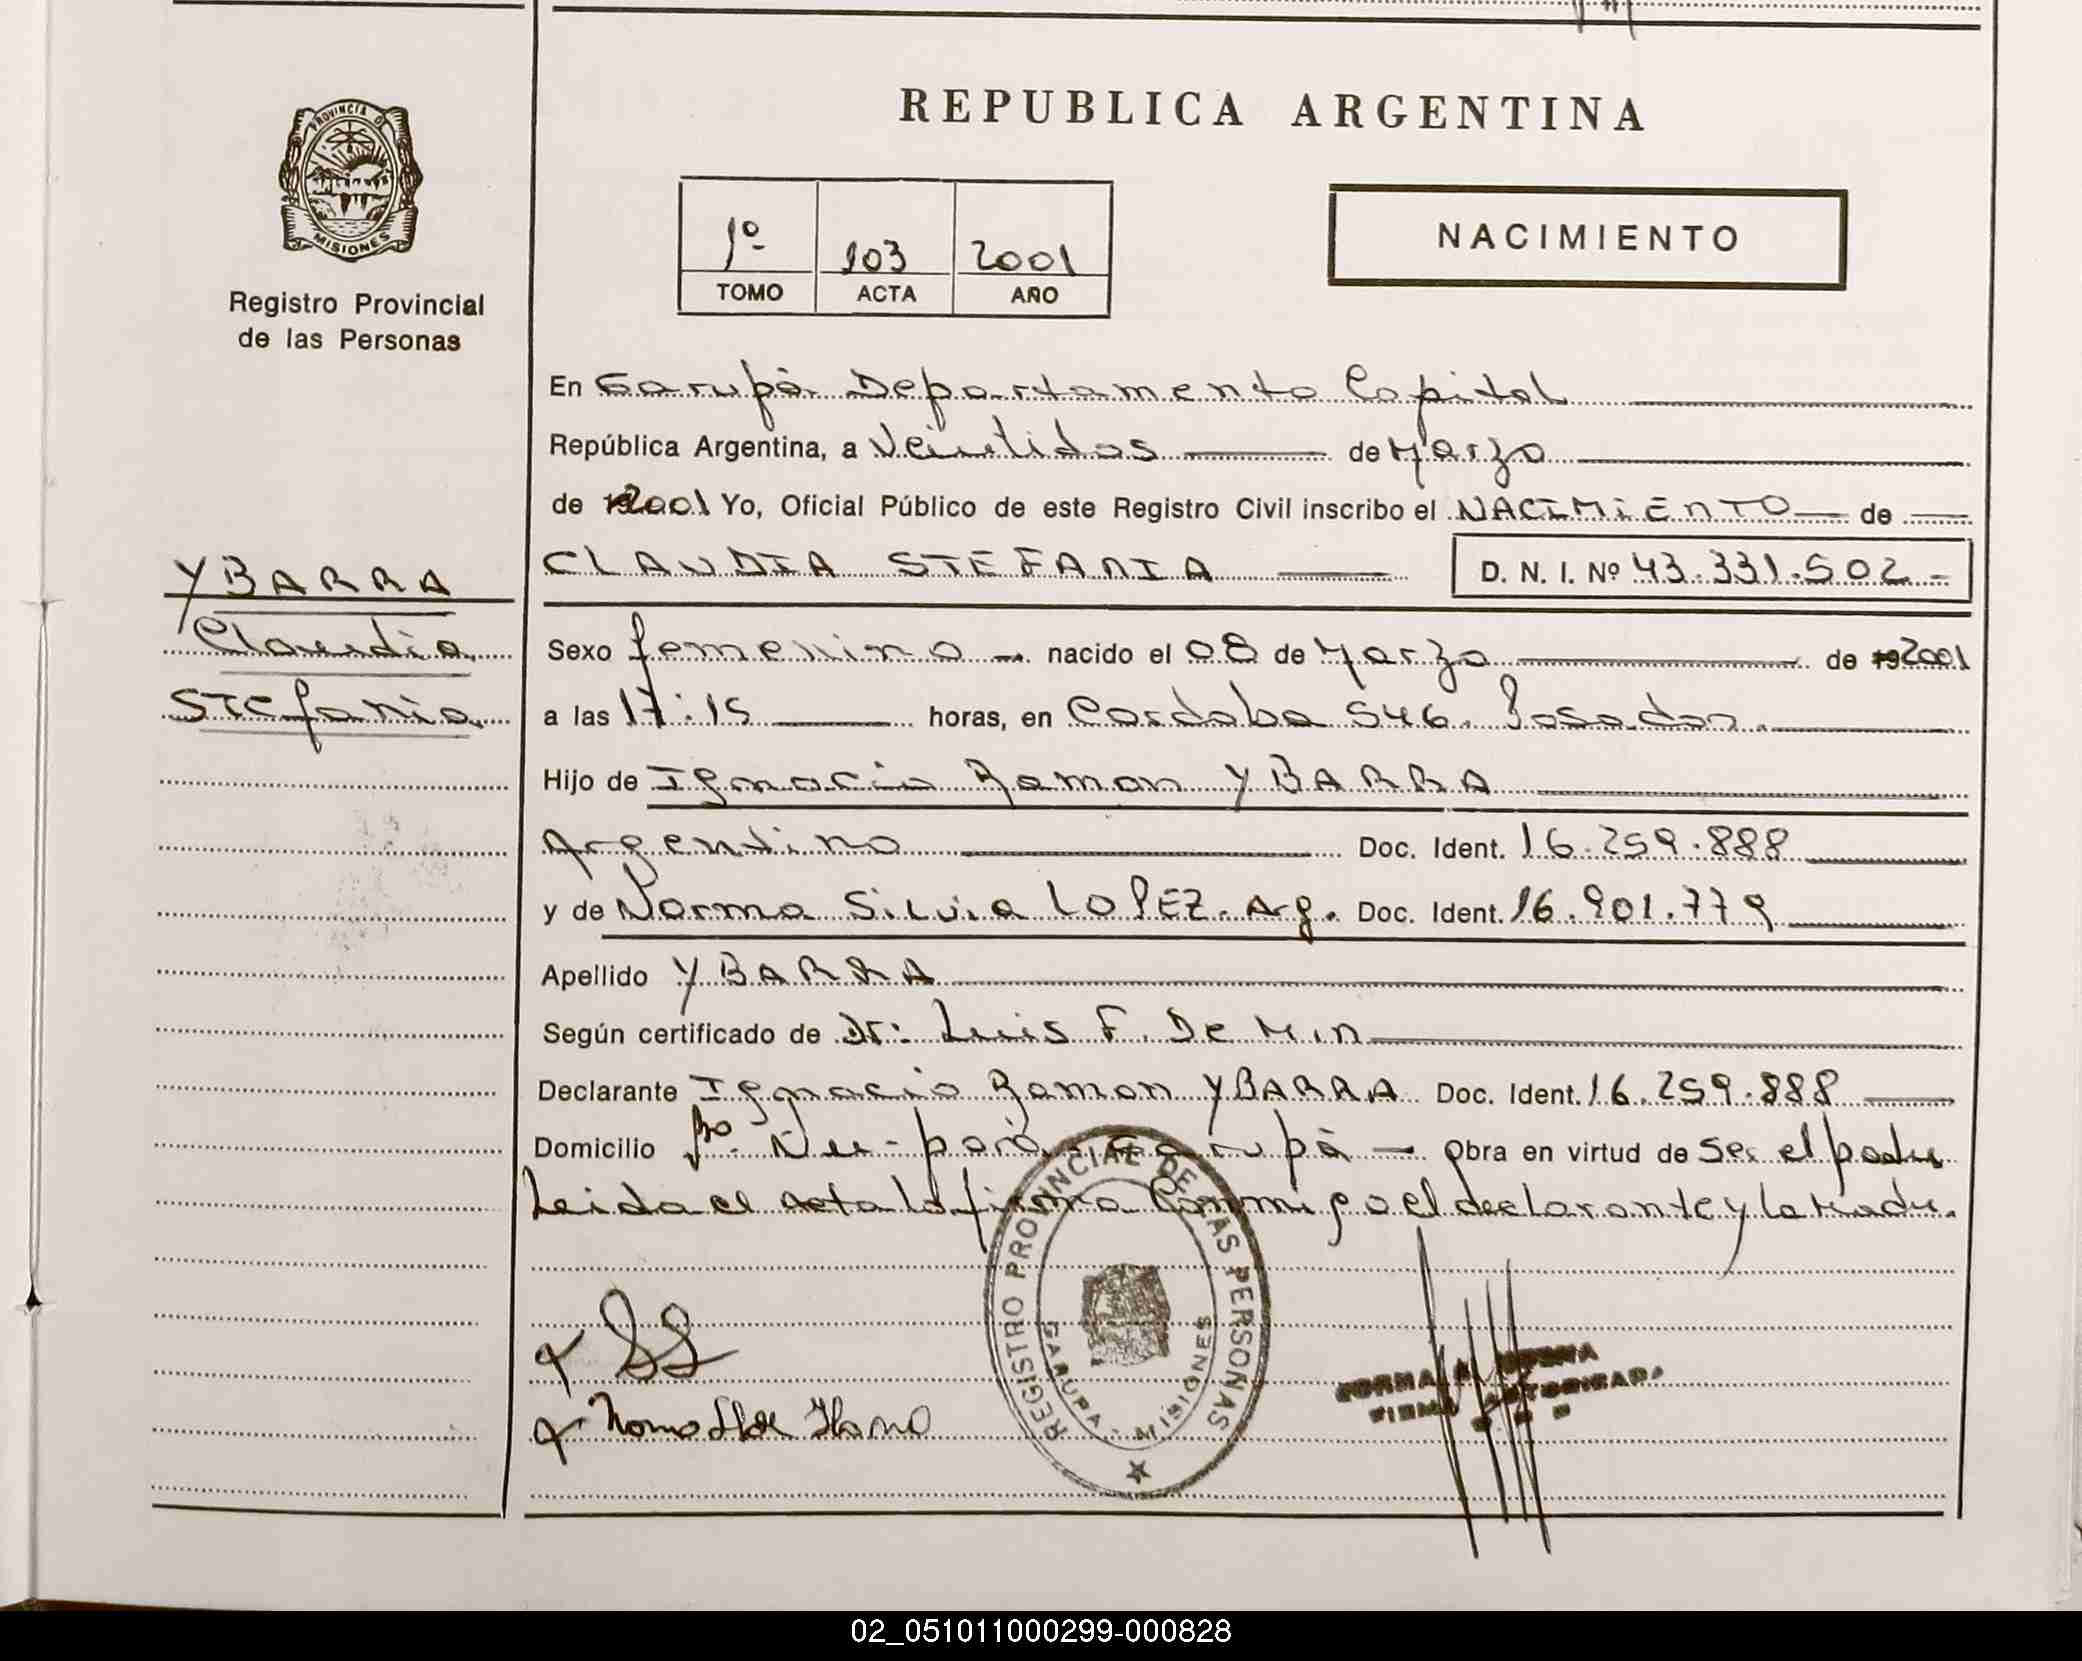 REPUBLICA ARGENTINA
PROVINCIA DE
MISIONES
Registro Provincial
de las Personas
1º 103 2001
TOMO ACTA AÑO
NACIMIENTO
En Garupá Departamento Capital
República Argentina, a Veintidos de Marzo
de 2001 Yo, Oficial Público de este Registro Civil inscribo el NACIMIENTO de
CLAUDIA STEFANIA D. N. I. Nº 43.331.502-
YBARRA
Claudia
Stefania
Sexo femenino nacido el 08 de Marzo de 192001
a las 17:15 horas, en Cordoba 546. Posadas.
Hijo de Ignacio Ramon YBARRA
Argentino Doc. Ident. 16.259.888
y de Norma Silvia LOPEZ. Arg. Doc. Ident. 16.901.779
Apellido YBARRA
Según certificado de Dr: Luis F. De Min
Declarante Ignacio Ramon YBARRA Doc. Ident. 16.259.888
Domicilio Bo. Ñu-porá Garupá - Obra en virtud de Ser el padre
Leida el acta la firma Conmigo el declarante y la Madre.
REGISTRO PROVINCIAL DE LAS PERSONAS
GARUPA - MISIONES
NORMA
FIRMA AUTORIZADA
02_051011000299-000828